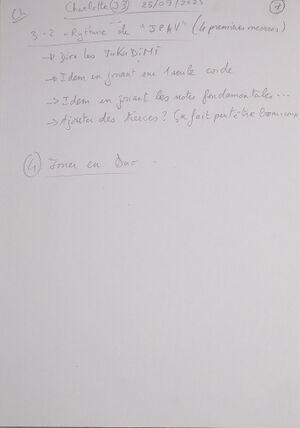 Ch Charlotte (J3) 25/09/2023 7
3.2 - Rythme de "JPAV" (4 premières mesures)
→ Dire les TaKaDiMi
→ Idem en jouant sur 1 seule corde
→ Idem en jouant les notes fondamentales...
→ Ajouter des tierces ? Ça fait peut être beaucoup
4) Jouer en Duo